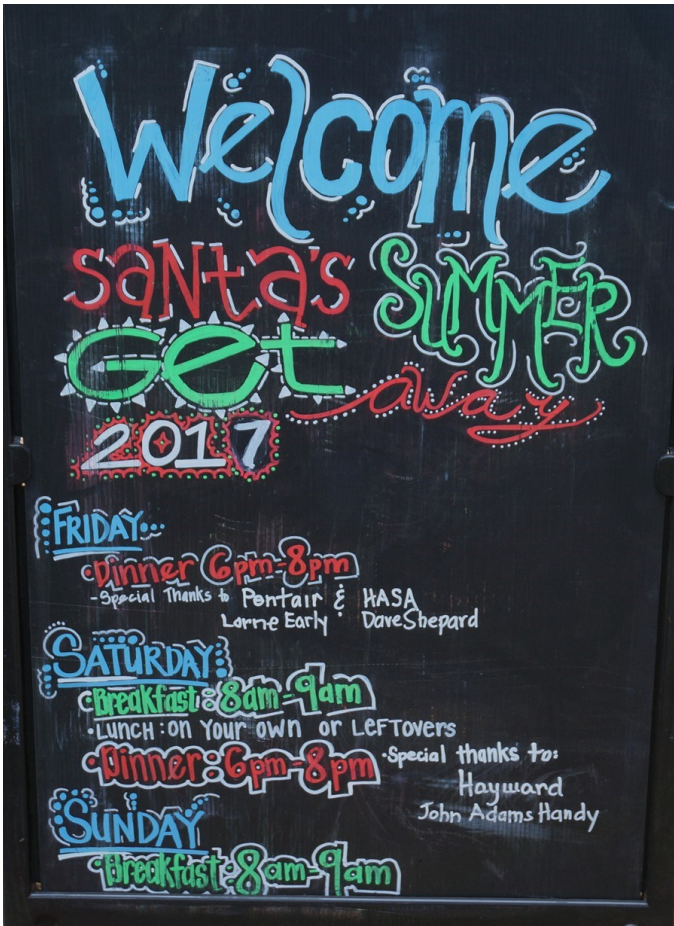 Welcome
Santa's SUMMER
Get away
2017
FRIDAY...
•Dinner 6pm-8pm
-Special Thanks to Pentair & HASA
Lorne Early & Dave Shepard
SATURDAY:
•Breakfast: 8am-9am
•LUNCH: on Your own or LeFTovers
•Dinner: 6pm-8pm •Special thanks to:
Hayward
John Adams Handy
SUNDAY
•Breakfast: 8am-9am